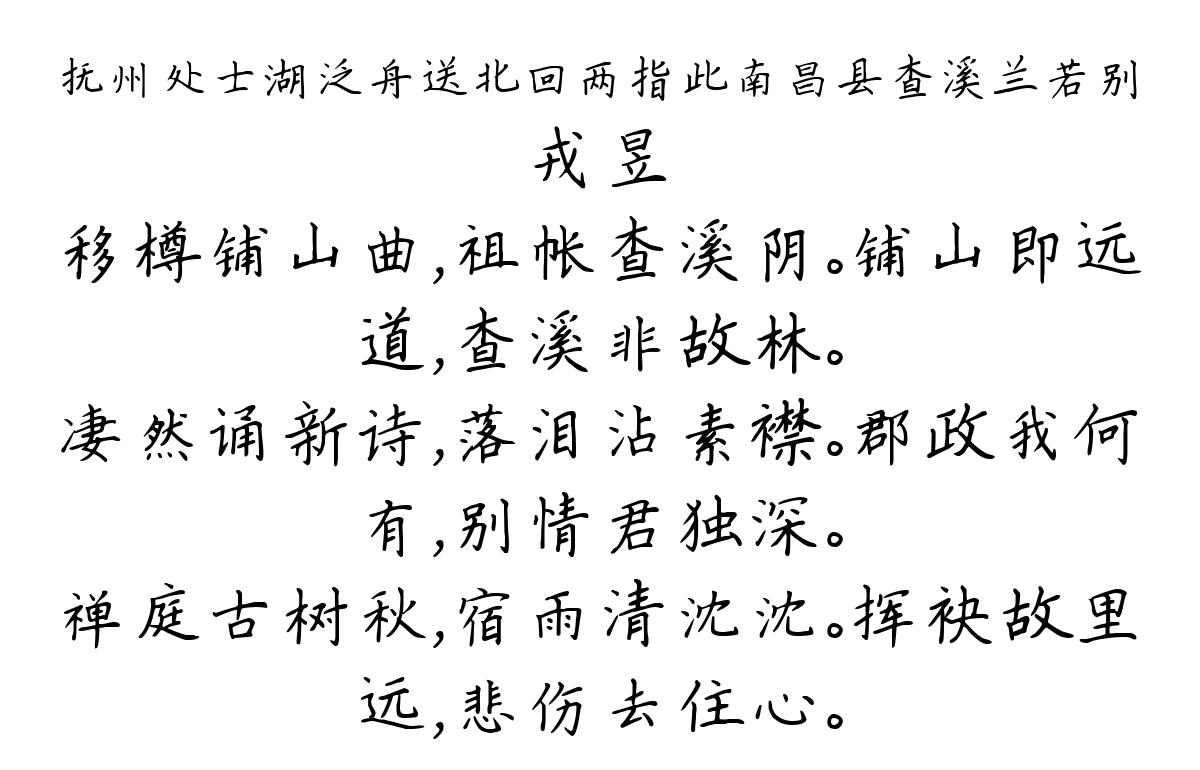 抚州处士湖泛舟送北回两指此南昌县查溪兰若别
戎昱
移樽铺山曲,祖帐查溪阴。铺山即远
道,查溪非故林。
凄然诵新诗,落泪沾素襟。郡政我何
有,别情君独深。
禅庭古树秋,宿雨清沈沈。挥袂故里
远,悲伤去住心。